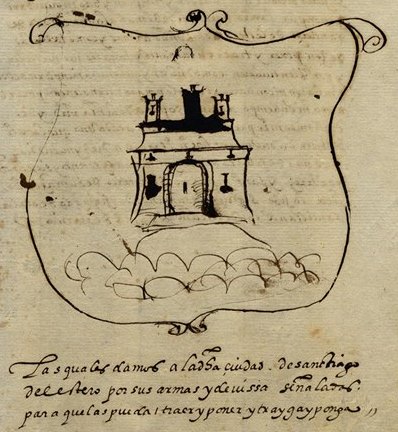 Las quales damos a la dha ciudad. de santtiago
del estero por sus armas y devissa señaladas.
para que las pueda ttraer y poner y trayga y ponga